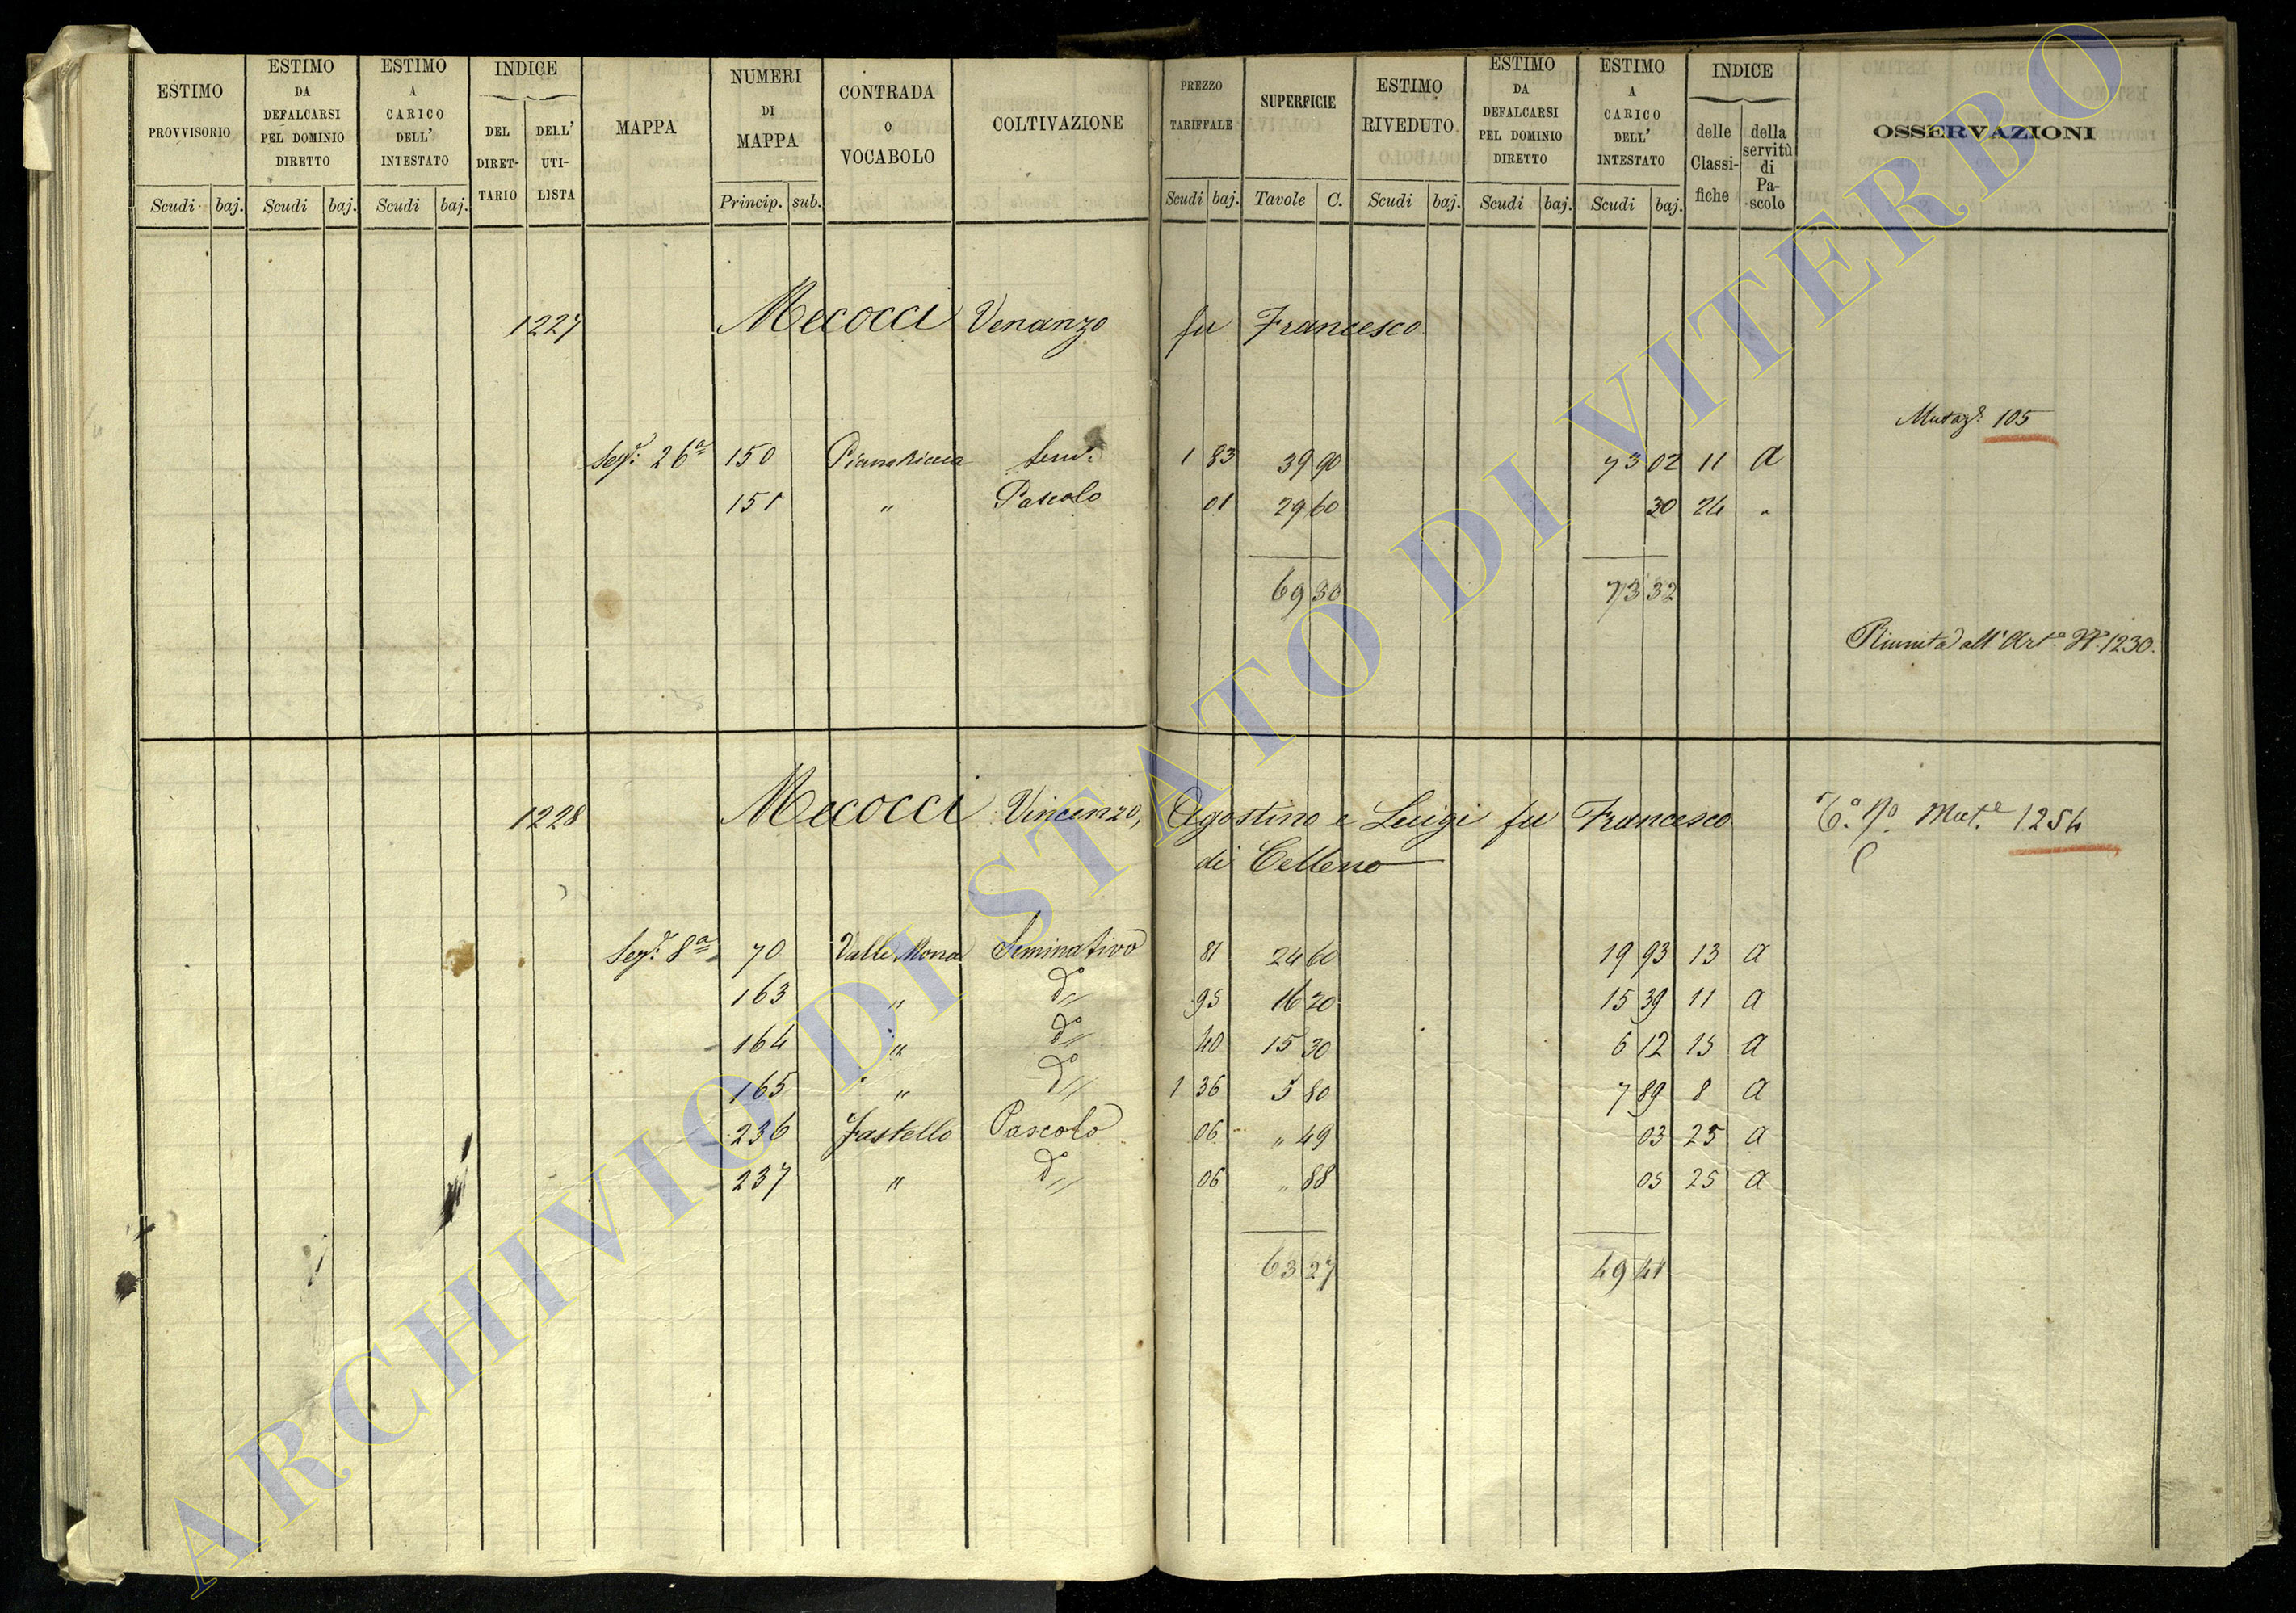 ESTIMO PROVVISORIO Scudi baj.
ESTIMO DA DEFALCARSI PEL DOMINIO DIRETTO Scudi baj.
ESTIMO A CARICO DELL' INTESTATO Scudi baj.
INDICE DEL DIRET-TARIO DELL' UTI-LISTA
MAPPA
NUMERI DI MAPPA Princip. sub.
CONTRADA O VOCABOLO
COLTIVAZIONE
PREZZO TARIFFALE Scudi baj.
SUPERFICIE Tavole C.
ESTIMO RIVEDUTO Scudi baj.
ESTIMO DA DEFALCARSI PEL DOMINIO DIRETTO Scudi baj.
ESTIMO A CARICO DELL' INTESTATO Scudi baj.
INDICE delle Classi-fiche della servitù di Pa-scolo
OSSERVAZIONI
1227 Mecocci Venanzo fu Francesco
Mutaz.e 105
Sez.e 26a 150 Sem.o 1 83 39 90 73 02 11 a
151 " Pascolo 01 29 60 30 24 "
69 50 73 32
Riunita all'Art.o N.o 1230.
1228 Mecocci Vincenzo, Agostino e Luigi fu Francesco Mut.e 1254
di Celleno
Sez.e 8a 70 Valle Mona Seminativo 81 24 60 19 93 13 a
163 " do 95 16 20 15 39 11 a
164 " do 40 15 30 6 12 15 a
165 " do 1 36 5 80 7 89 8 a
236 Fastello Pascolo 06 " 49 03 25 a
237 " do 06 " 88 05 25 a
63 27 49 41
ARCHIVIO DI STATO DI VITERBO